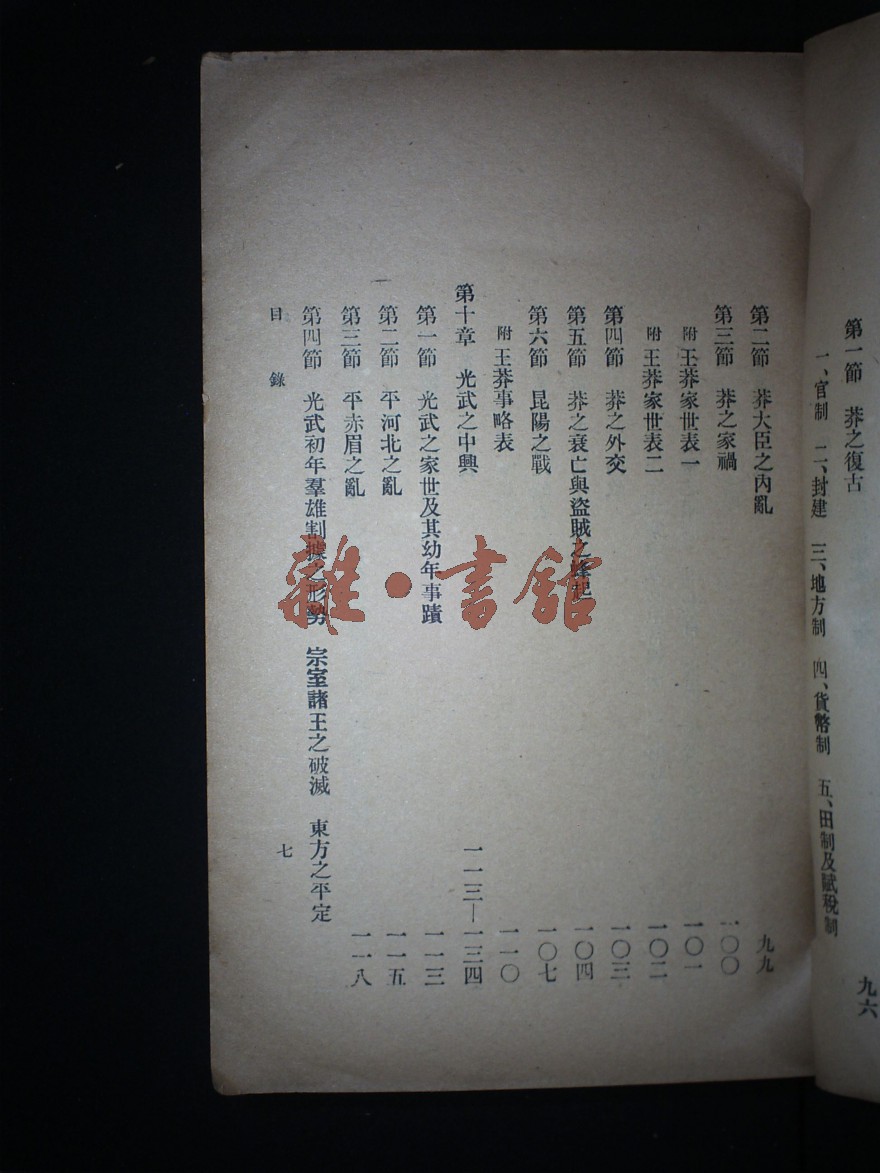 第一節　莽之復古　九六
一、官制　二、封建　三、地方制　四、貨幣制　五、田制及賦稅制
第二節　莽大臣之內亂　九九
第三節　莽之家禍　一〇〇
附　王莽家世表一　一〇一
附　王莽家世表二　一〇二
第四節　莽之外交　一〇三
第五節　莽之衰亡與盜賊之蜂起　一〇四
第六節　昆陽之戰　一〇七
附　王莽事略表　一一〇
第十章　光武之中興　一一三—一三四
第一節　光武之家世及其幼年事蹟　一一三
第二節　平河北之亂　一一五
第三節　平赤眉之亂　一一八
第四節　光武初年羣雄割據之形勢　宗室諸王之破滅　東方之平定
目錄　七
雜·書館